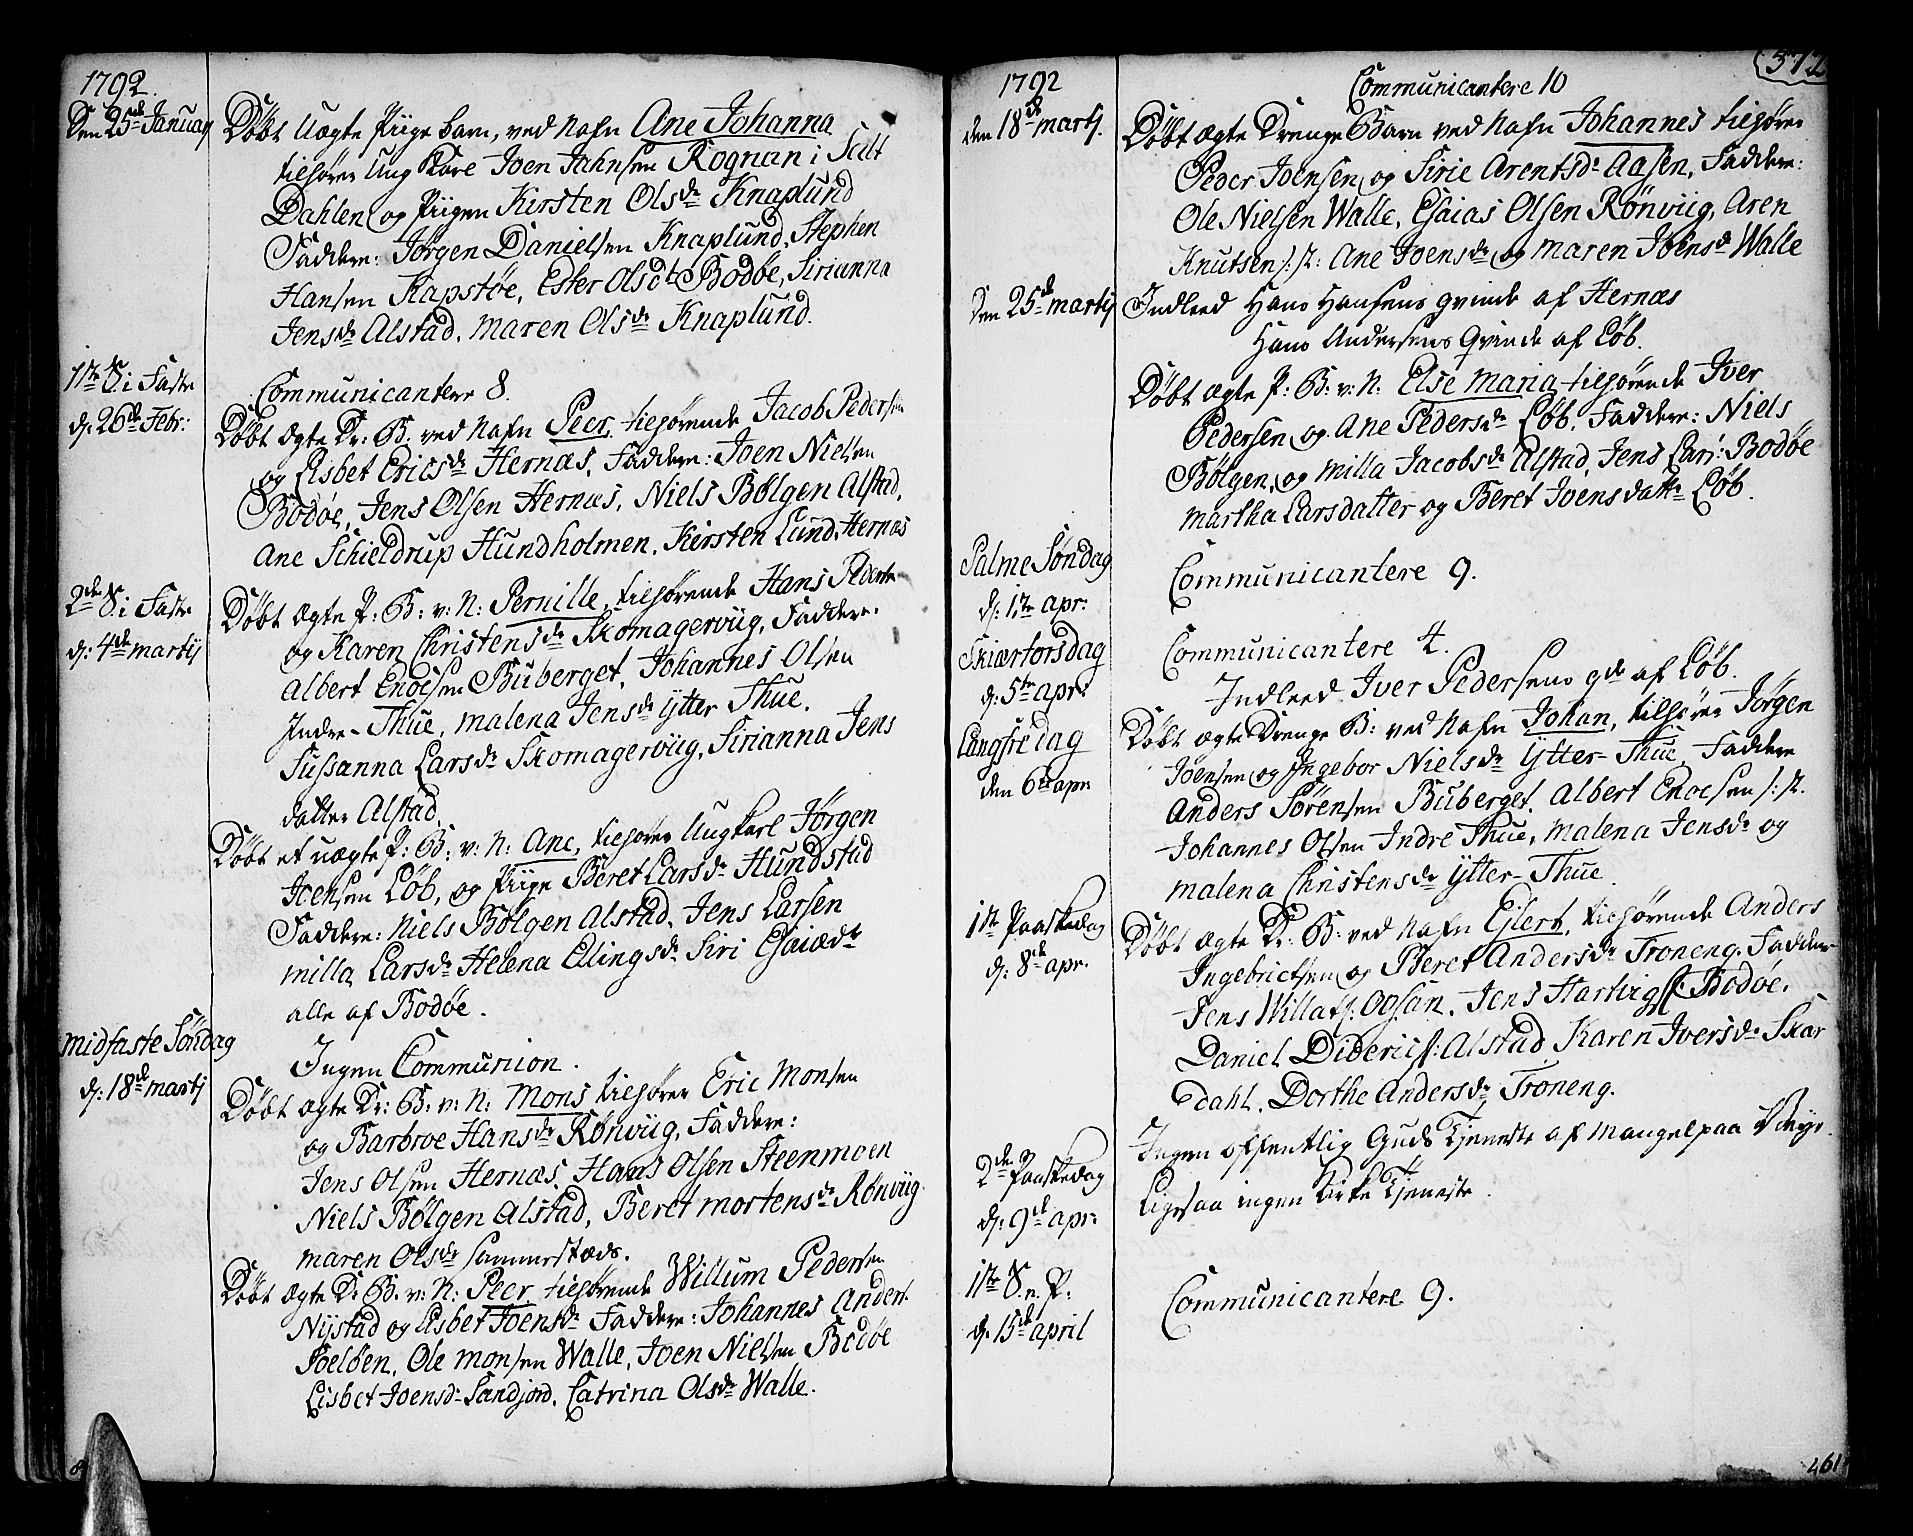 1792.
Den 25de Januarj
Døbt Uægte Piige barn, ved Nafn Ane Johanna
tilhører Ung Karl Joen Jahnsen Rognan i Salt
Dahlen og Piigen Kirsten Olsdr Knaplund
Faddere: Jørgen Danielsen Knaplund, Stephen
Hansen Kapstøe, Ester Olsdt Bodøe, Sirianna
Jensdr Alstad, Maren Olsdr Knaplund.
1te S. i Faste
d: 26de Febr:
Communicantere 8.
Døbt Ægte Dr: B. ved Nafn Peer, tilhørende Jacob Pedersen
og Lisbet Ericsdr Hernæs, Faddere: Joen Nielsen
Bodøe, Jens Olsen Hernæs, Niels Bølgen Alstad,
Ane Schieldrup Hundholmen, Kirsten Lund, Hernæs
2den S. i Faste
d: 4de Martij
Døbt Ægte P: B: v: N: Pernille, tilhørende Hans Peders:
og Karen Christensdr Skomagerviig, Faddere:
Albert Enocsen Buberget, Johannes Olsen
Indre-Thue, Malena Jensdr Ytter Thue,
Sussanna Larsdr Skomagerviig, Sirianna Jens
datter Alstad.
Døbt et uægte P: B: v: N: Ane, tilhører Ungkarl Jørgen
Joensen Løb, og Piige Beret Larsdr Hundstad
Faddere: Niels Bølgen Alstad, Jens Larsen
Milla Larsdr Helena Elingsdr Siri Esaiædr
alle af Bodøe.
Midfaste Søndag
d: 18de Martij
Ingen Communion.
Døbt ægte Dr: B: v: N: Mons tilhører Eric Monsen
og Barbroe Hansdr Rønviig, Faddere:
Jens Olsen Hernæs, Hans Olsen Steenmoen
Niels Bølgen Alstad, Beret Mortensdr Rønviig
Maren Olsdr sammestæds.
Døbt Ægte D: B. v: N: Peer tilhørende Willum Pedersen
Nystad og Lisbet Joensdr Faddere: Johannes Anders:
Soeløen, Ole Monsen Walle, Joen Nielsen Bodøe
Lisbet Joensdr Sandjord, Catrina Olsdr Walle.
1792
372
den 18de Martj.
Communicantere 10
Døbt ægte Drenge Barn ved Nafn Johannes tilhører
Peder Joensen og Sirie Arentsdr Aasen, Faddere:
Ole Nielsen Walle, Esaias Olsen Rønviig, Aren
Knutsen /: st: Ane Joensdr og Maren Joensdr Walle
Den 25de Martij
Indleed Hans Hansens Qvinde af Hernæs
Hans Andersens Qvinde af Løb.
Døbt ægte P: B: v: N: Else Maria tilhørende Iver
Pedersen og Ane Pedersdr Løb. Faddere: Niels
Bølgen, og Milla Jacobsdr Alstad, Jens Lars: Bodøe
Martha Larsdatter og Beret Joensdattr Løb.
Palme Søndag
d: 1te apr:
Communicantere 9.
Skiærtorsdag
d: 5te apr:
Communicantere 4.
Indleed Iver Pedersens qde af Løb.
Langfredag
den 6te apr
Døbt ægte Drenge B: ved Nafn Johan, tilhører Jørgen
Joensen og Ingebor Nielsdr Ytter-Thue, Faddere
Anders Sørensen Buberget, Albert Enocsen /: st.
Johannes Olsen Indre Thue, Malena Jensdr og
Malena Christensdr Ytter-Thue.
1te Paaskedag
d: 8de apr.
Døbt Ægte Dr: B: ved Nafn Ejlert, tilhørende Anders
Ingebrictsen og Beret Andersdr Troneng. Faddere
Jens Willats: Opsan, Jens Hartvigs: Bodøe,
Daniel Diderics: Alstad, Karen Iversdr Skar
dahl, Dorthe Andersdr Troneng.
2den Paaskedag
d: 9de apr:
Ingen offentlig Guds Tjeneste af Mangel paa
Ligesaa ingen Kirke Tjeneste.
1te S. e. P:
d: 15de april
Communicantere 9.
461